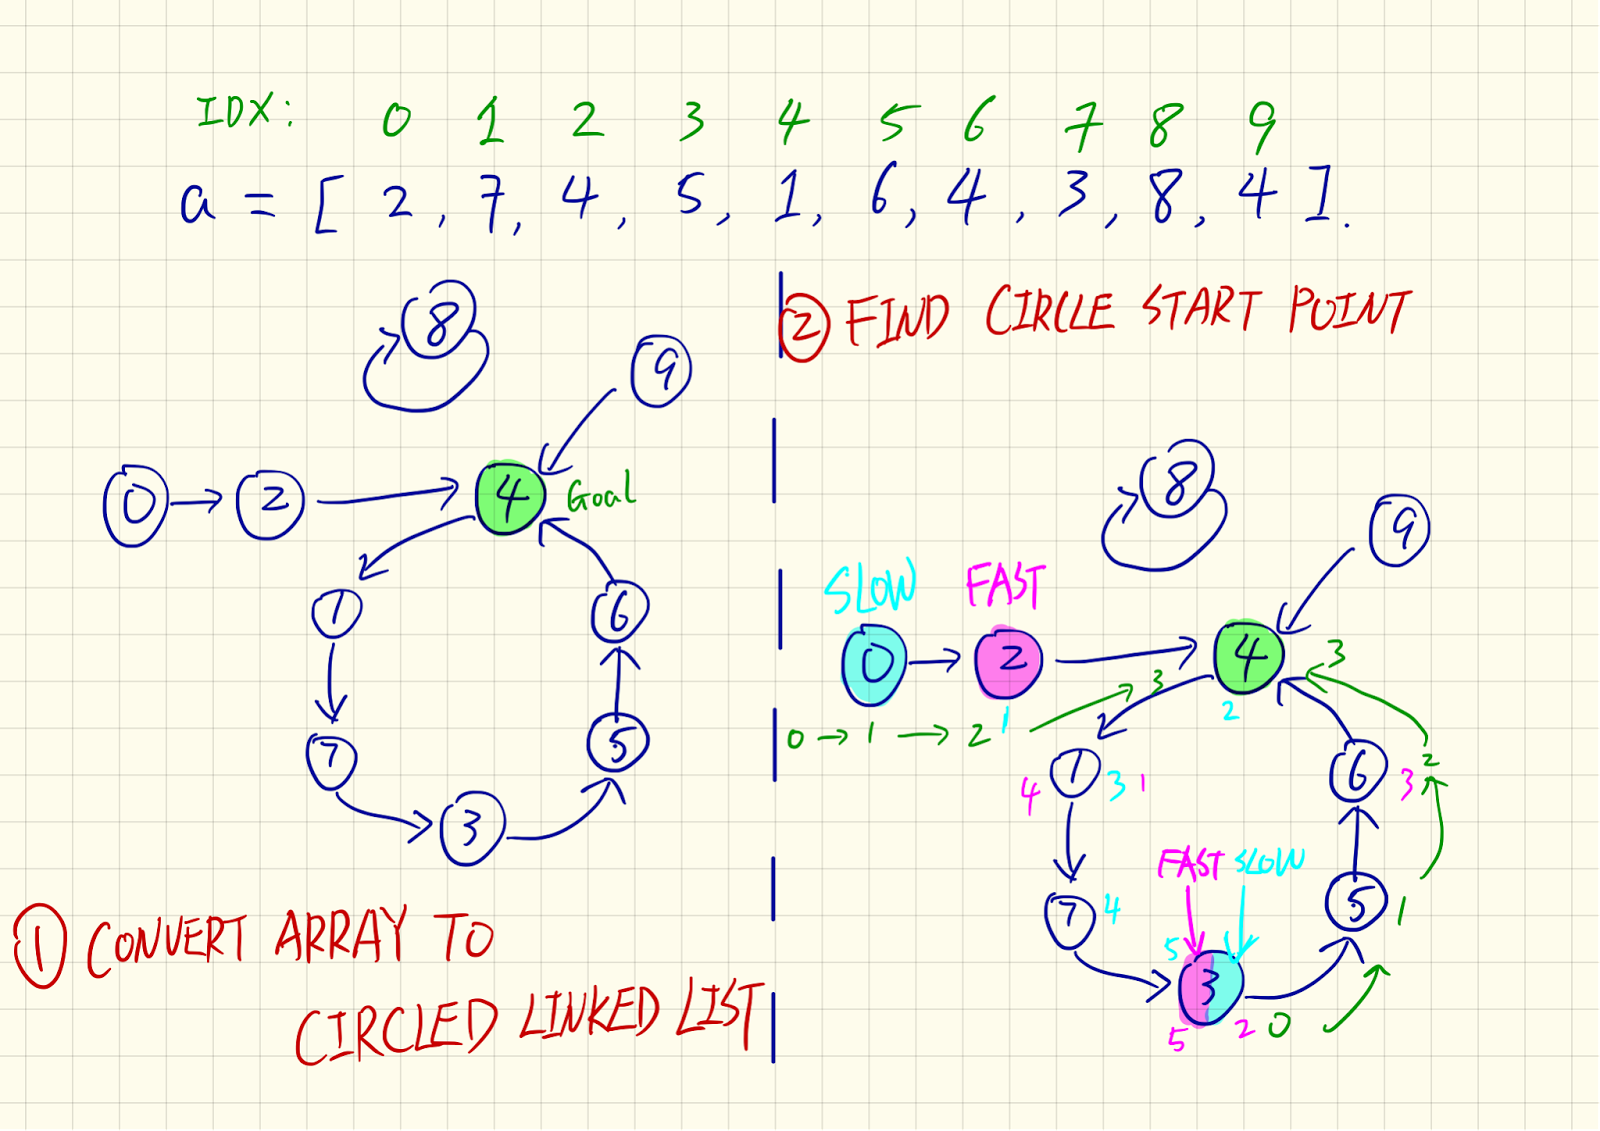 IDX: 0 1 2 3 4 5 6 7 8 9
a = [ 2, 7, 4, 5, 1, 6, 4, 3, 8, 4 ].
8
9
0 → 2 → 4 Goal
1
6
7
5
3
① CONVERT ARRAY TO
CIRCLED LINKED LIST
② FIND CIRCLE START POINT
8
9
SLOW FAST
0 → 2 → 4 3
0 → 1 → 2 1 3 2
4 1 3 1
6 3 2
FAST SLOW
7 4
5 1
5 3
5 2 0